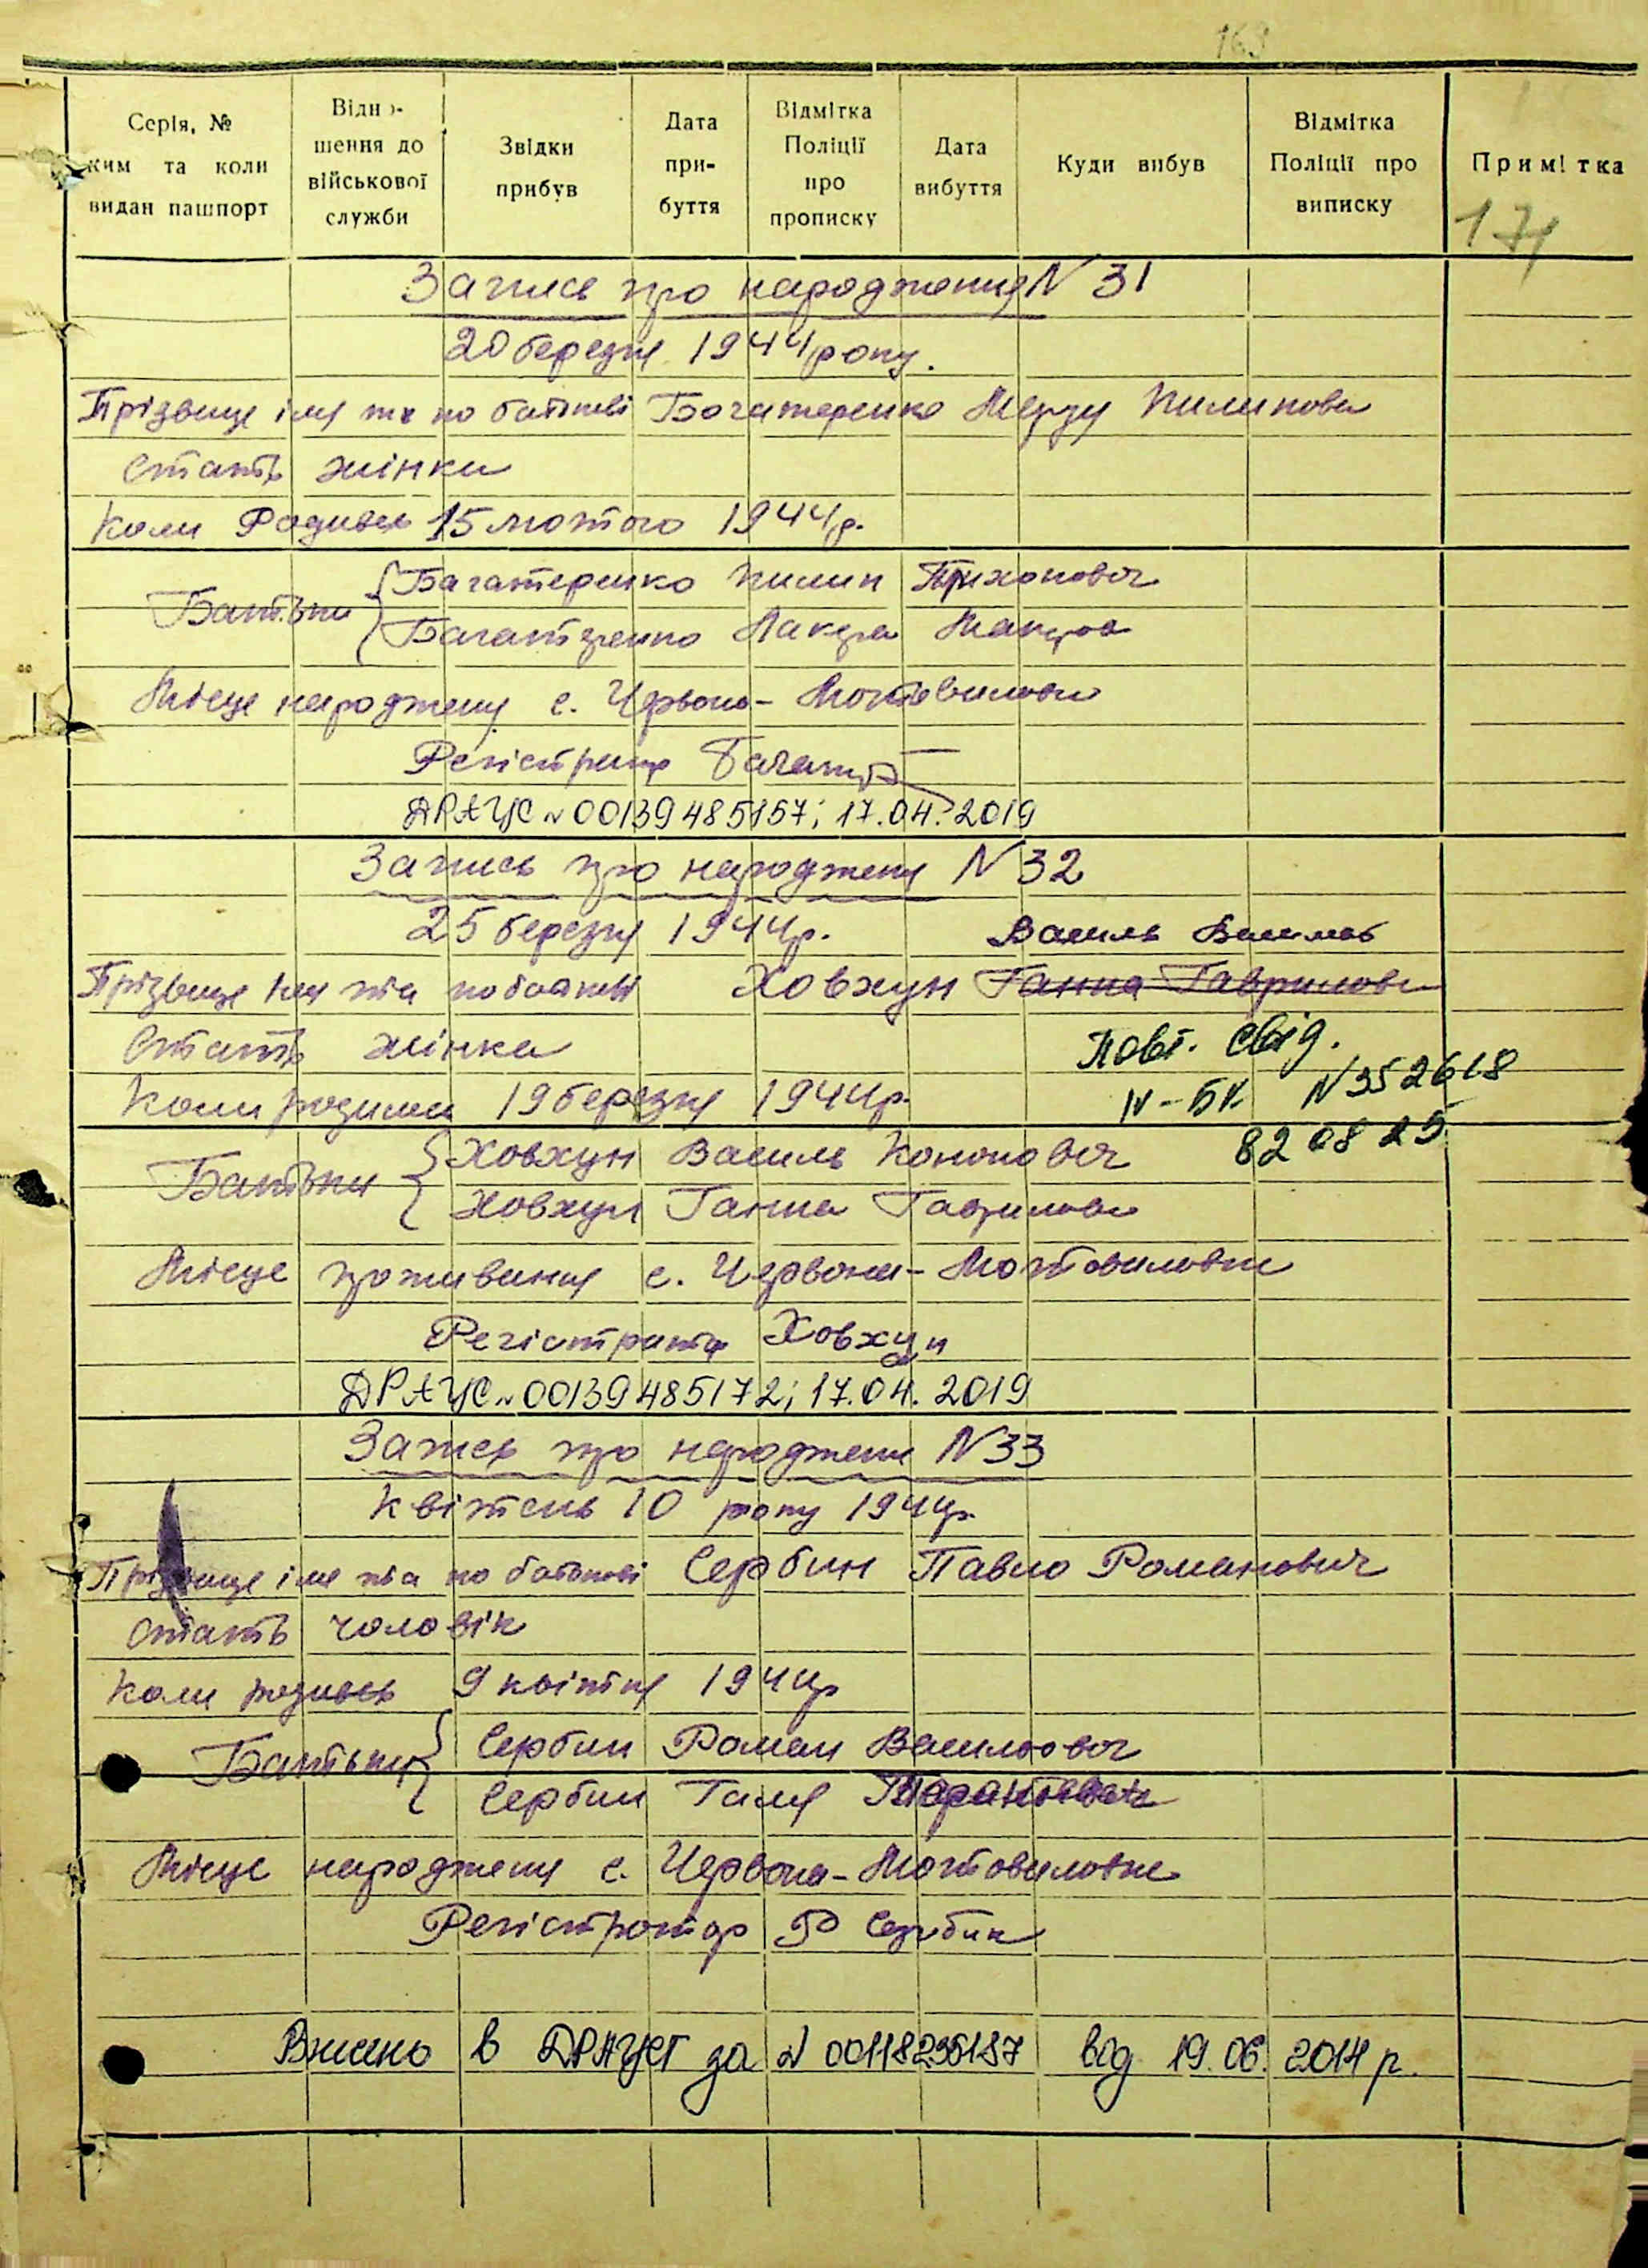 163
Серія, № ким та коли видан пашпорт
Відношення до військової служби
Звідки прибув
Дата прибуття
Відмітка Поліції про прописку
Дата вибуття
Куди вибув
Відмітка Поліції про виписку
Примітка
171
Запись про народження N 31
20 березня 1944 року.
Прізвище імя та по батькові Богатеренко Пилипова
Стать жінка
Коли Родився 15 лютого 1944 р.
Батьки { Багатеренко Пилип Трихонович
Багатеренко
Місце народженя с. Червона-Мотовиловка
Регістрація
ДРАЦС № 00139485157; 17.04.2019
Запись про народженя N 32
25 березня 1944 р. Василь
Прізвище імя та по батькові Ховхун Ганна Гаврилова
Повт. свід.
Стать жінка
IV-БК N 352618
Коли родилась 19 березня 1944 р.
82 08 25
Батьки { Ховхун Василь Кононович
Ховхун Ганна Гаврилова
Місце проживаня с. Червона-Мотовиловка
Регістрація Ховхун
ДРАЦС № 00139485172; 17.04.2019
Запись про народженя N 33
Квітень 10 року 1944 р.
Прізвище імя та по батькові Сербин Павло Романович
Стать чоловік
Коли родивсь 9 квітня 1944 р
Батьки { Сербин Роман Васильович
Сербин Галя
Місце народженя с. Червона-Мотовиловка
Регістратор Сербин
Внесено в ДРАЦСГ за № 00118236187 від 19.06.2014 р.